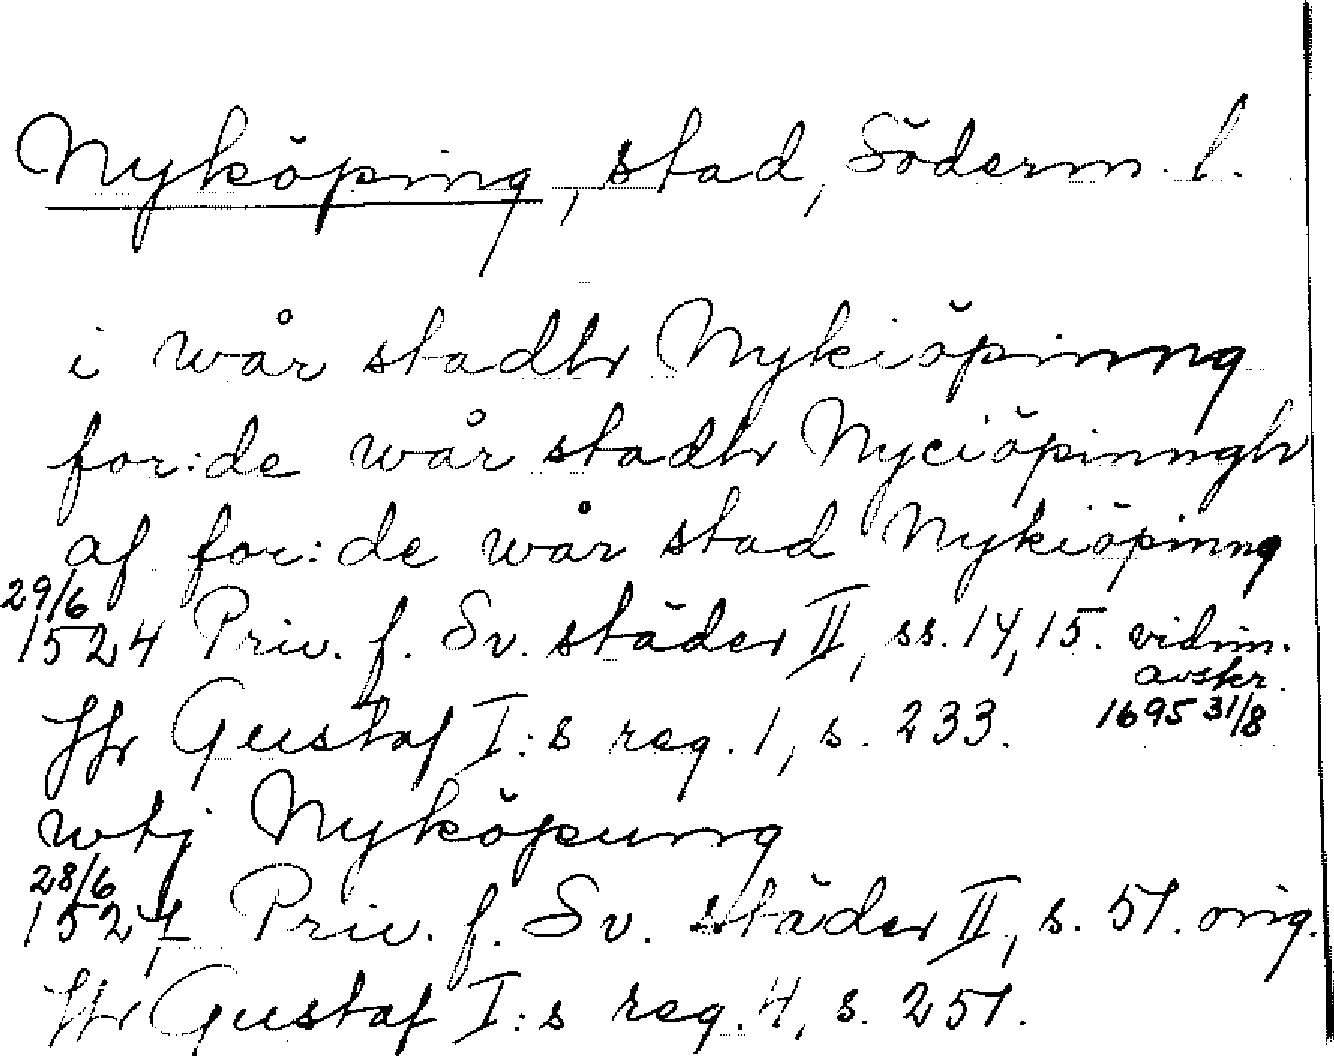 Nyköping, stad, Söderm. l.
i wår stadh Nykiöpinng
for:de wår stadh Nyciöpinngh
af for:de wår stad Nykiöpinng
29/6
1524 Priv. f. Sv. städer II, ss. 14, 15. vidim.
avskr.
1695 31/8
Jfr Gustaf I:s reg. 1, s. 233.
wtj Nyköpung
28/6
1527 Priv. f. Sv. städer II, s. 51. orig.
Jfr Gustaf I:s reg. 4, s. 251.